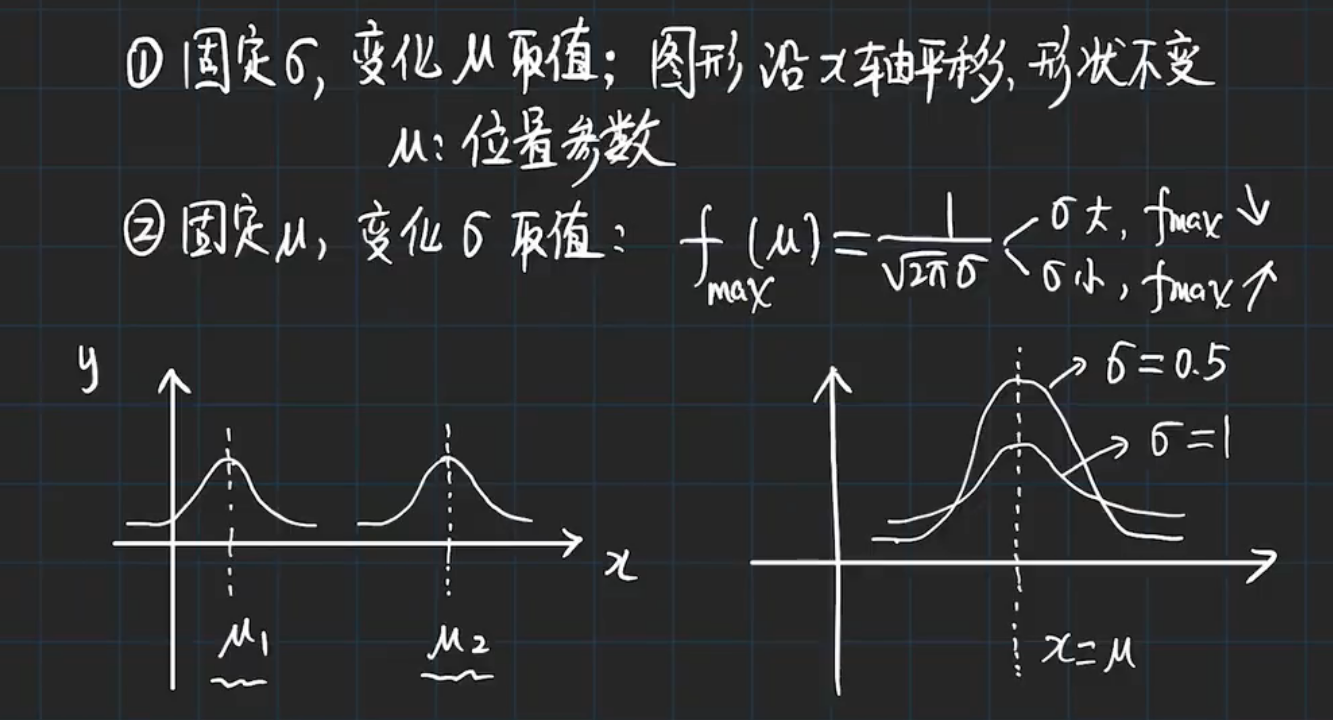 ① 固定σ, 变化μ取值; 图形沿x轴平移, 形状不变
μ: 位置参数
② 固定μ, 变化σ取值: f_max(μ) = 1/√2πσ < σ大, f_max ↓
σ小, f_max ↑
y
σ=0.5
σ=1
x
μ₁ μ₂
x=μ